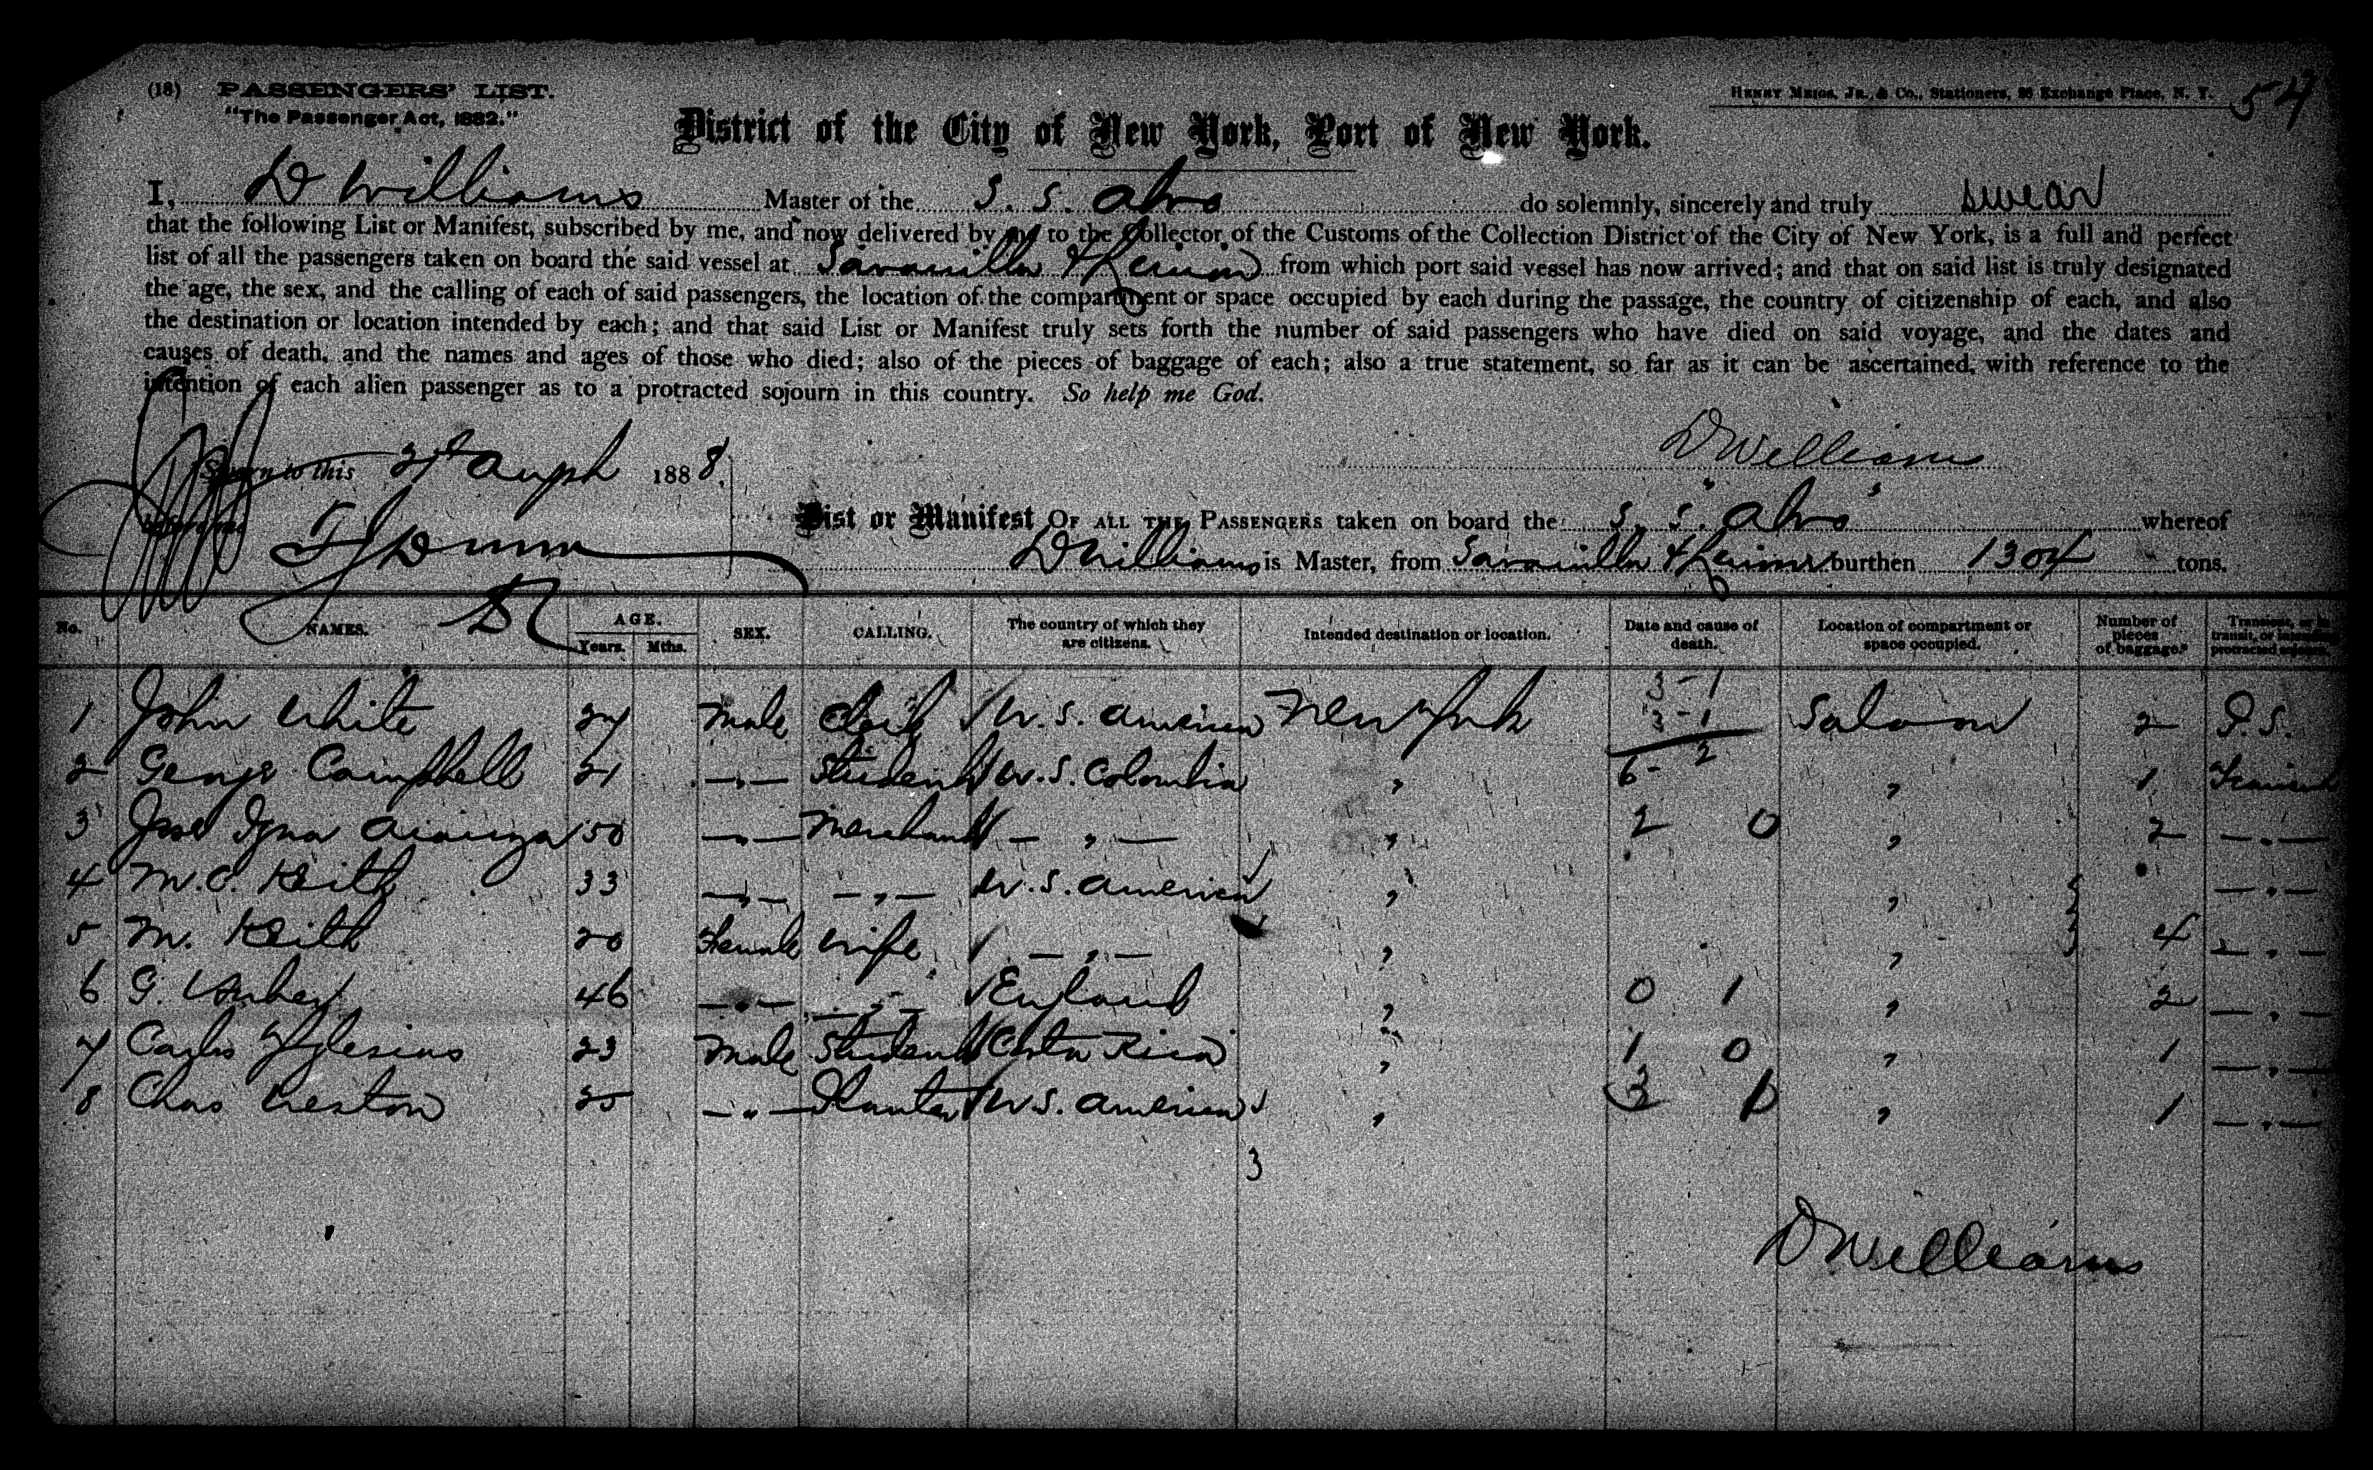 (18) PASSENGERS' LIST.
"The Passenger Act, 1882."
HENRY MEIGS, JR., & Co., Stationers, 26 Exchange Place, N. Y.
54
District of the City of New York, Port of New York.
I, D Williams Master of the S. S. Alvo do solemnly, sincerely and truly swear
that the following List or Manifest, subscribed by me, and now delivered by me to the Collector of the Customs of the Collection District of the City of New York, is a full and perfect
list of all the passengers taken on board the said vessel at Savanilla & from which port said vessel has now arrived; and that on said list is truly designated
the age, the sex, and the calling of each of said passengers, the location of the compartment or space occupied by each during the passage, the country of citizenship of each, and also
the destination or location intended by each; and that said List or Manifest truly sets forth the number of said passengers who have died on said voyage, and the dates and
causes of death, and the names and ages of those who died; also of the pieces of baggage of each; also a true statement, so far as it can be ascertained, with reference to the
intention of each alien passenger as to a protracted sojourn in this country. So help me God.
D Williams
Sworn to this 1888.
before me
List or Manifest OF ALL THE PASSENGERS taken on board the S. S. "Alvo" whereof
D Williams is Master, from Savanilla & burthen 1304 tons.
No. NAMES. AGE. Years. Mths. SEX. CALLING. The country of which they are citizens. Intended destination or location. Date and cause of death. Location of compartment or space occupied. Number of pieces of baggage. Transient, or in transit, or intending protracted sojourn.
3-1
1 John White 24 Male Clerk U. S. America New York 3-1 Saloon 2 P.S.
2 George Campbell 21 -"- Student U. S. Colombia " 6-2 " 1 Transient
3 Jose 50 -"- Merchant - " - " 2 0 " 2 -"-
4 M. C. Keith 33 -"- -"- U. S. America " " -"-
5 M. Keith 20 Female Wife - " - " " 4 -"-
6 G. 46 -"- -"- England " 0 1 " 2 -"-
7 Carlos Yglesias 23 Male Student Costa Rica " 1 0 " 1 -"-
8 Chas 25 -"- Planter U. S. America " 3 1 " 1 -"-
3
D Williams